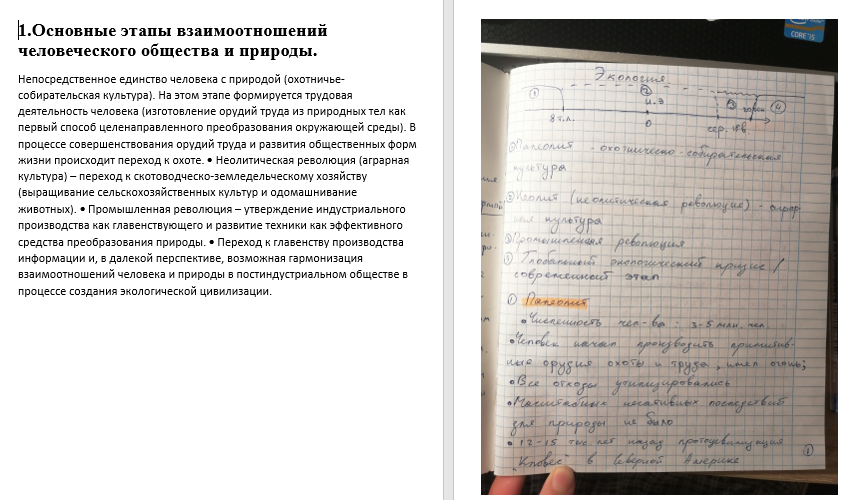 1.Основные этапы взаимоотношений
человеческого общества и природы.
Непосредственное единство человека с природой (охотничье-
собирательская культура). На этом этапе формируется трудовая
деятельность человека (изготовление орудий труда из природных тел как
первый способ целенаправленного преобразования окружающей среды). В
процессе совершенствования орудий труда и развития общественных форм
жизни происходит переход к охоте. • Неолитическая революция (аграрная
культура) – переход к скотоводческо-земледельческому хозяйству
(выращивание сельскохозяйственных культур и одомашнивание
животных). • Промышленная революция – утверждение индустриального
производства как главенствующего и развитие техники как эффективного
средства преобразования природы. • Переход к главенству производства
информации и, в далекой перспективе, возможная гармонизация
взаимоотношений человека и природы в постиндустриальном обществе в
процессе создания экологической цивилизации.
CORE i5
Экология
① ② ③ ④
н.э
8 т.л. 0 сер. 18в
① Палеолит - охотническо-собирательская
культура
② Неолит (неолитическая революция) - аграр-
ная культура
③ Промышленная революция
④ Глобальный экологический кризис /
современный этап
① Палеолит
• Численность чел-ва : 3-5 млн. чел.
• Человек начал производить примитив-
ные орудия охоты и труда, имел огонь;
• Все отходы утилизировались
• Масштабных негативных последствий
для природы не было
• 12-15 тыс. лет назад протоцивилизация
"Кловес" в Северной Америке
①